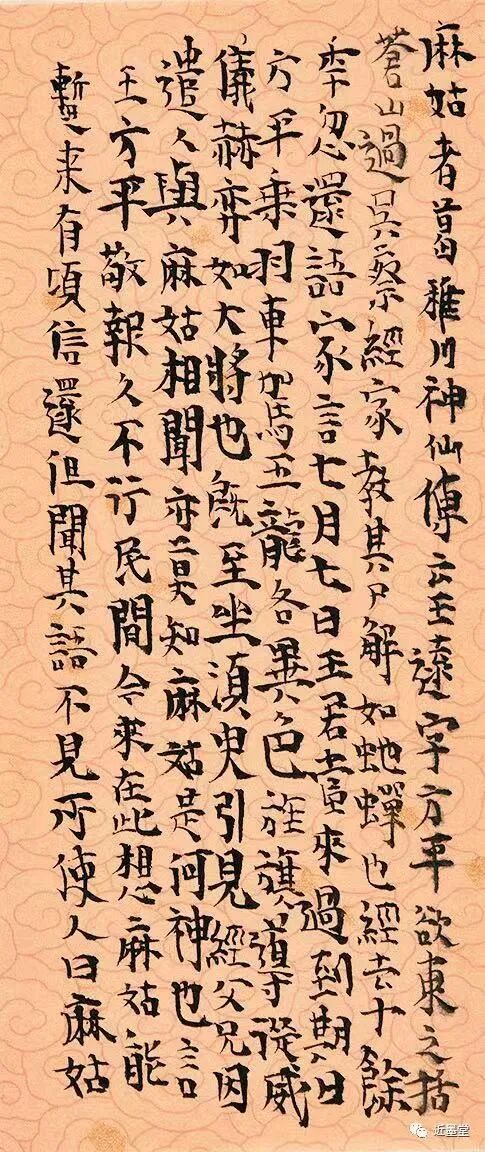 麻姑者葛稚川神仙傳云王遠字方平欲東之括
蒼山過吳蔡經家教其尸解如虵蟬也經去十餘
年忽還語家言七月七日王君當來過到期日
方平乗羽車駕五龍各異色旌旗導従威
儀赫弈如大將也既至坐須臾引見經父兄因
遣人與麻姑相聞亦莫知麻姑是何神也言
王方平敬報久不行民間今來在此想麻姑能
暫来有頃信還但聞其語不見所使人曰麻姑
近墨堂